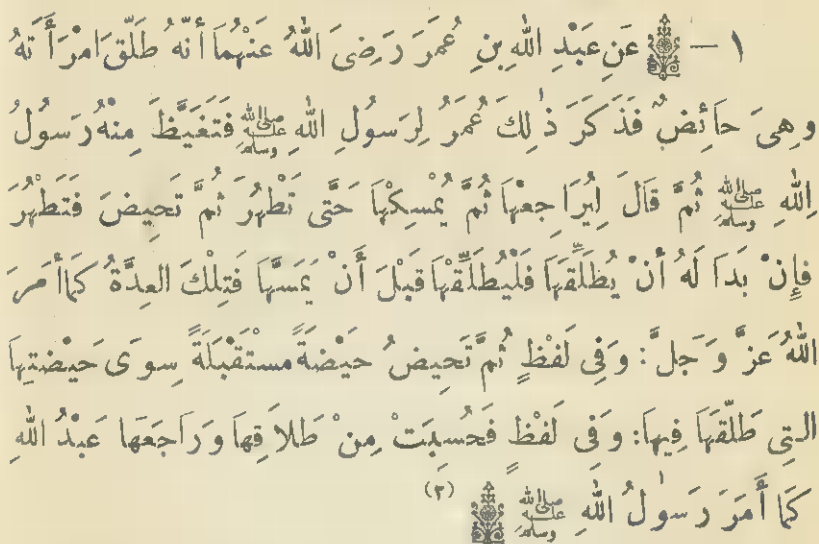 ١ — عَنِ عَبْدِ اللهِ بنِ عُمَرَ رَضِىَ اللهُ عَنْهُمَا أَنَّهُ طَلَّقَ امْرَأَتهُ
وهِىَ حَائِضٌ فَذَكَرَ ذٰلِكَ عُمَرُ لِرَسُولِ اللهِ ﷺ فَتَغَيَّظَ مِنْهُ رَسُولُ
اللهِ ﷺ ثُمَّ قَالَ لِيُرَاجِعْهَا ثُمَّ يُمْسِكْهَا حَتَّى تَطْهُرَ ثُمَّ تَحِيضَ فَتَطْهُرَ
فإِنْ بَدَا لَهُ أنْ يُطَلِّقَهَا فَلْيُطَلِّقْهَا قَبْلَ أَنْ يَمَسَّهَا فَتِلْكَ العِدَّةُ كَمَا أَمَرَ
اللهُ عَزَّ وَجَلَّ: وَفِى لَفْظٍ ثُمَّ تَحِيضُ حَيْضَةً مسْتَقْبَلَةً سِوَى حَيْضَتِهَا
التِى طَلَّقَهَا فِيهَا: وَفِى لَفْظٍ فَحُسِبَتْ مِنْ طَلاَقِهَا وَرَاجَعَها عَبْدُ اللهِ
كَمَا أَمَرَ رَسولُ اللهِ ﷺ (٢)